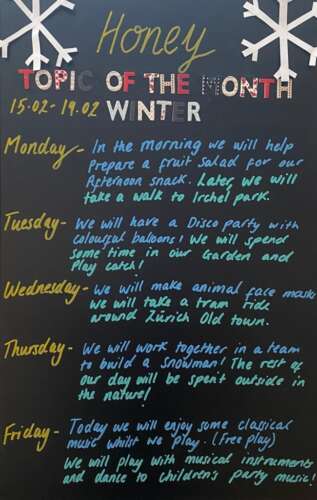 Honey
TOPIC OF THE MONTH
15.02-19.02 WINTER
Monday - In the morning we will help
prepare a fruit salad for our
Afternoon snack. Later, we will
take a walk to Irchel park.
Tuesday - We will have a Disco party with
colourful baloons! We will spend
some time in our Garden and
Play catch!
Wednesday - We will make animal face masks
we will take a tram ride
around Zürich Old town.
Thursday - We will work together in a team
to build a snowman! The rest of
our day will be spent outside in
the nature!
Friday - Today we will enjoy some classical
music whilst we play. (free play)
We will play with musical instruments
and dance to children's party music!